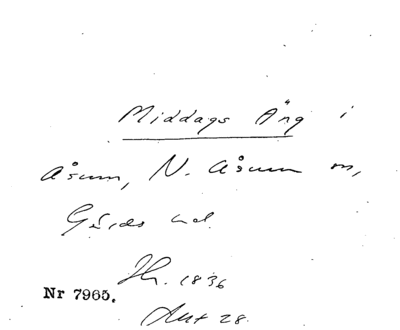 Middags Äng i
Åsum, N. Åsum sn,
Gärds hd.
1836
Nr 7965.
Akt 28.